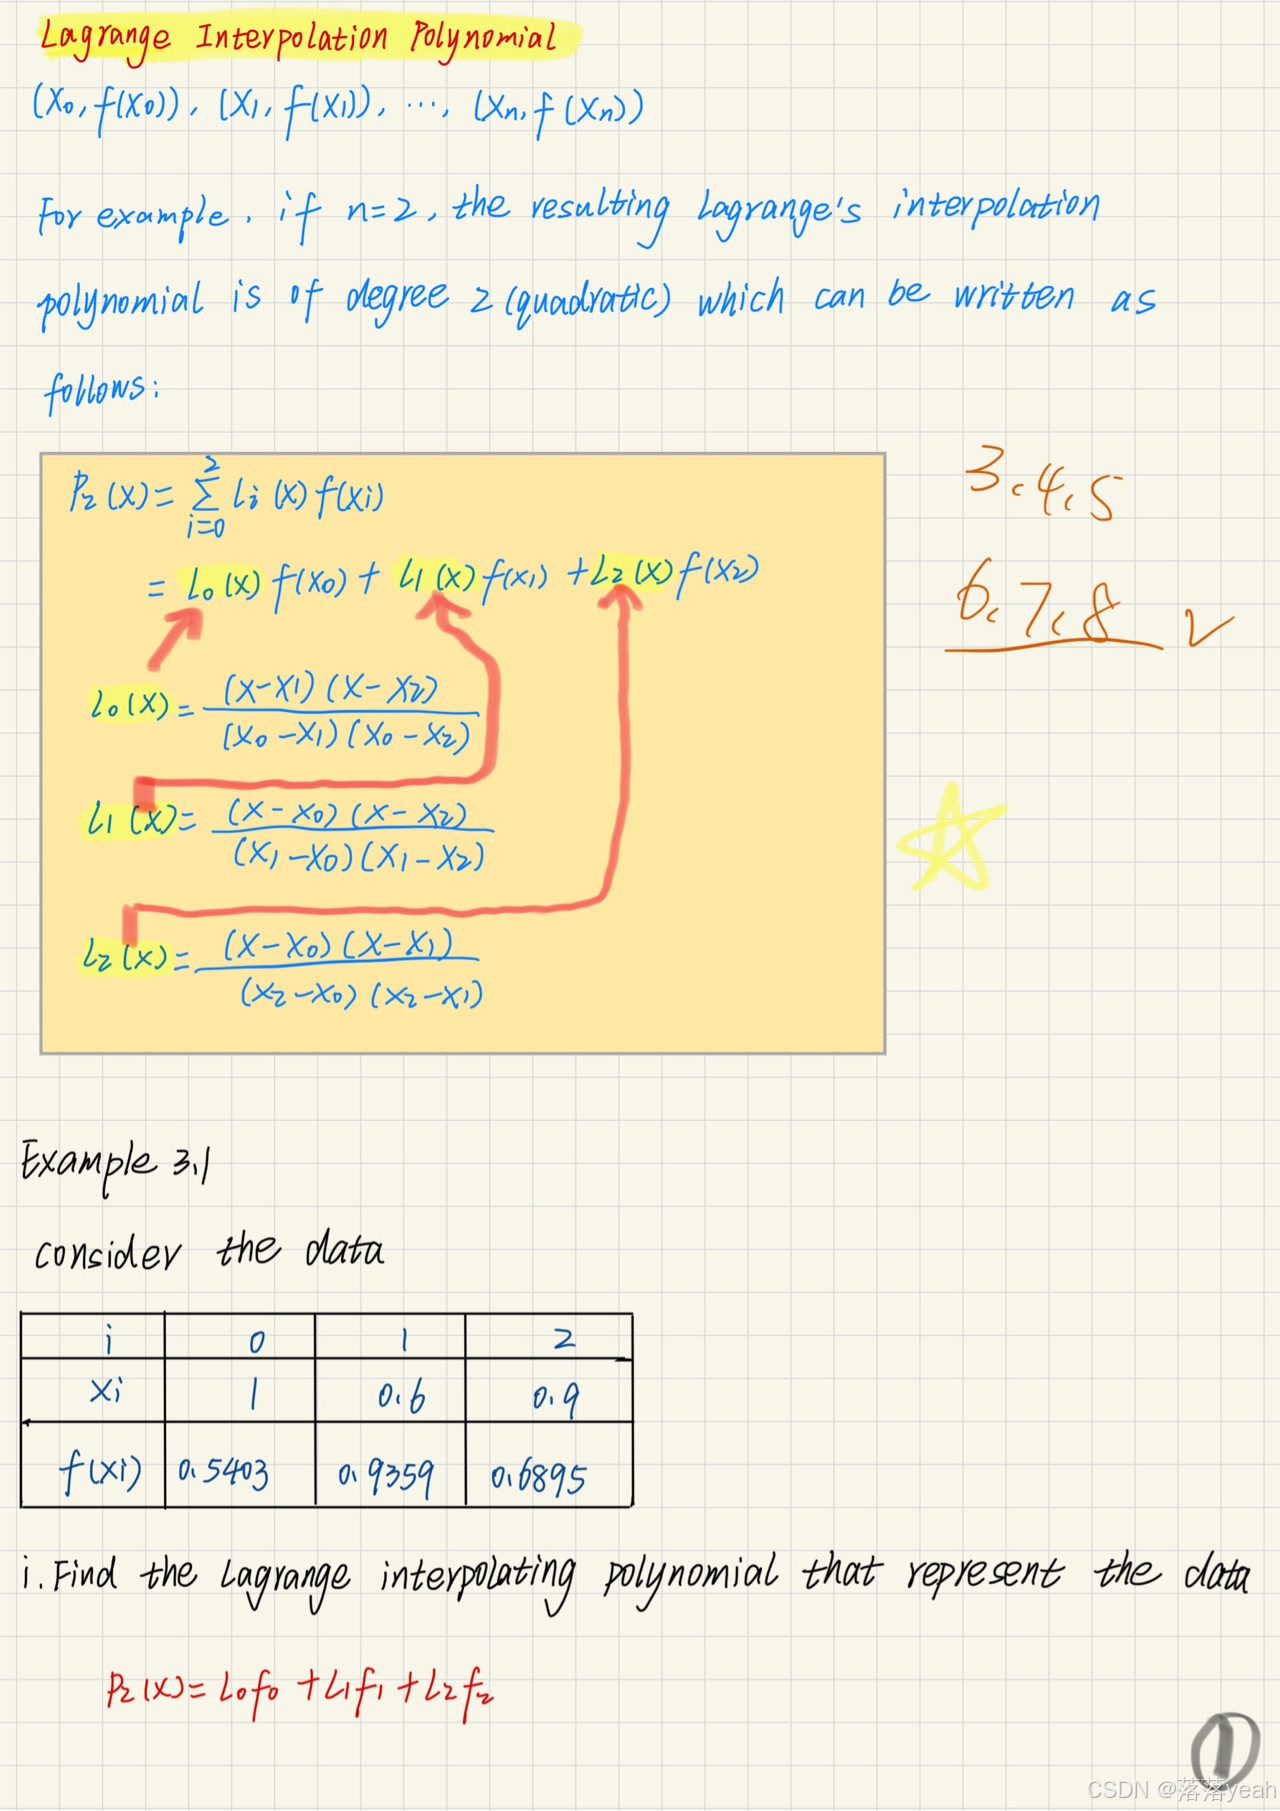 Lagrange Interpolation Polynomial
(x₀, f(x₀)), (x₁, f(x₁)), ..., (xₙ, f(xₙ))
For example, if n=2, the resulting Lagrange's interpolation
polynomial is of degree 2 (quadratic) which can be written as
follows:
P₂(x) = Σ_{i=0}^{2} Lᵢ(x) f(xᵢ)
= L₀(x) f(x₀) + L₁(x) f(x₁) + L₂(x) f(x₂)
L₀(x) = (x-x₁)(x-x₂) / (x₀-x₁)(x₀-x₂)
L₁(x) = (x-x₀)(x-x₂) / (x₁-x₀)(x₁-x₂)
L₂(x) = (x-x₀)(x-x₁) / (x₂-x₀)(x₂-x₁)
3, 4, 5
6, 7, 8 ✓
Example 3.1
consider the data
i 0 1 2
xi 1 0.6 0.9
f(xi) 0.5403 0.9359 0.6895
i. Find the Lagrange interpolating polynomial that represent the data
P₂(x) = L₀f₀ + L₁f₁ + L₂f₂
①
CSDN @落落yeah